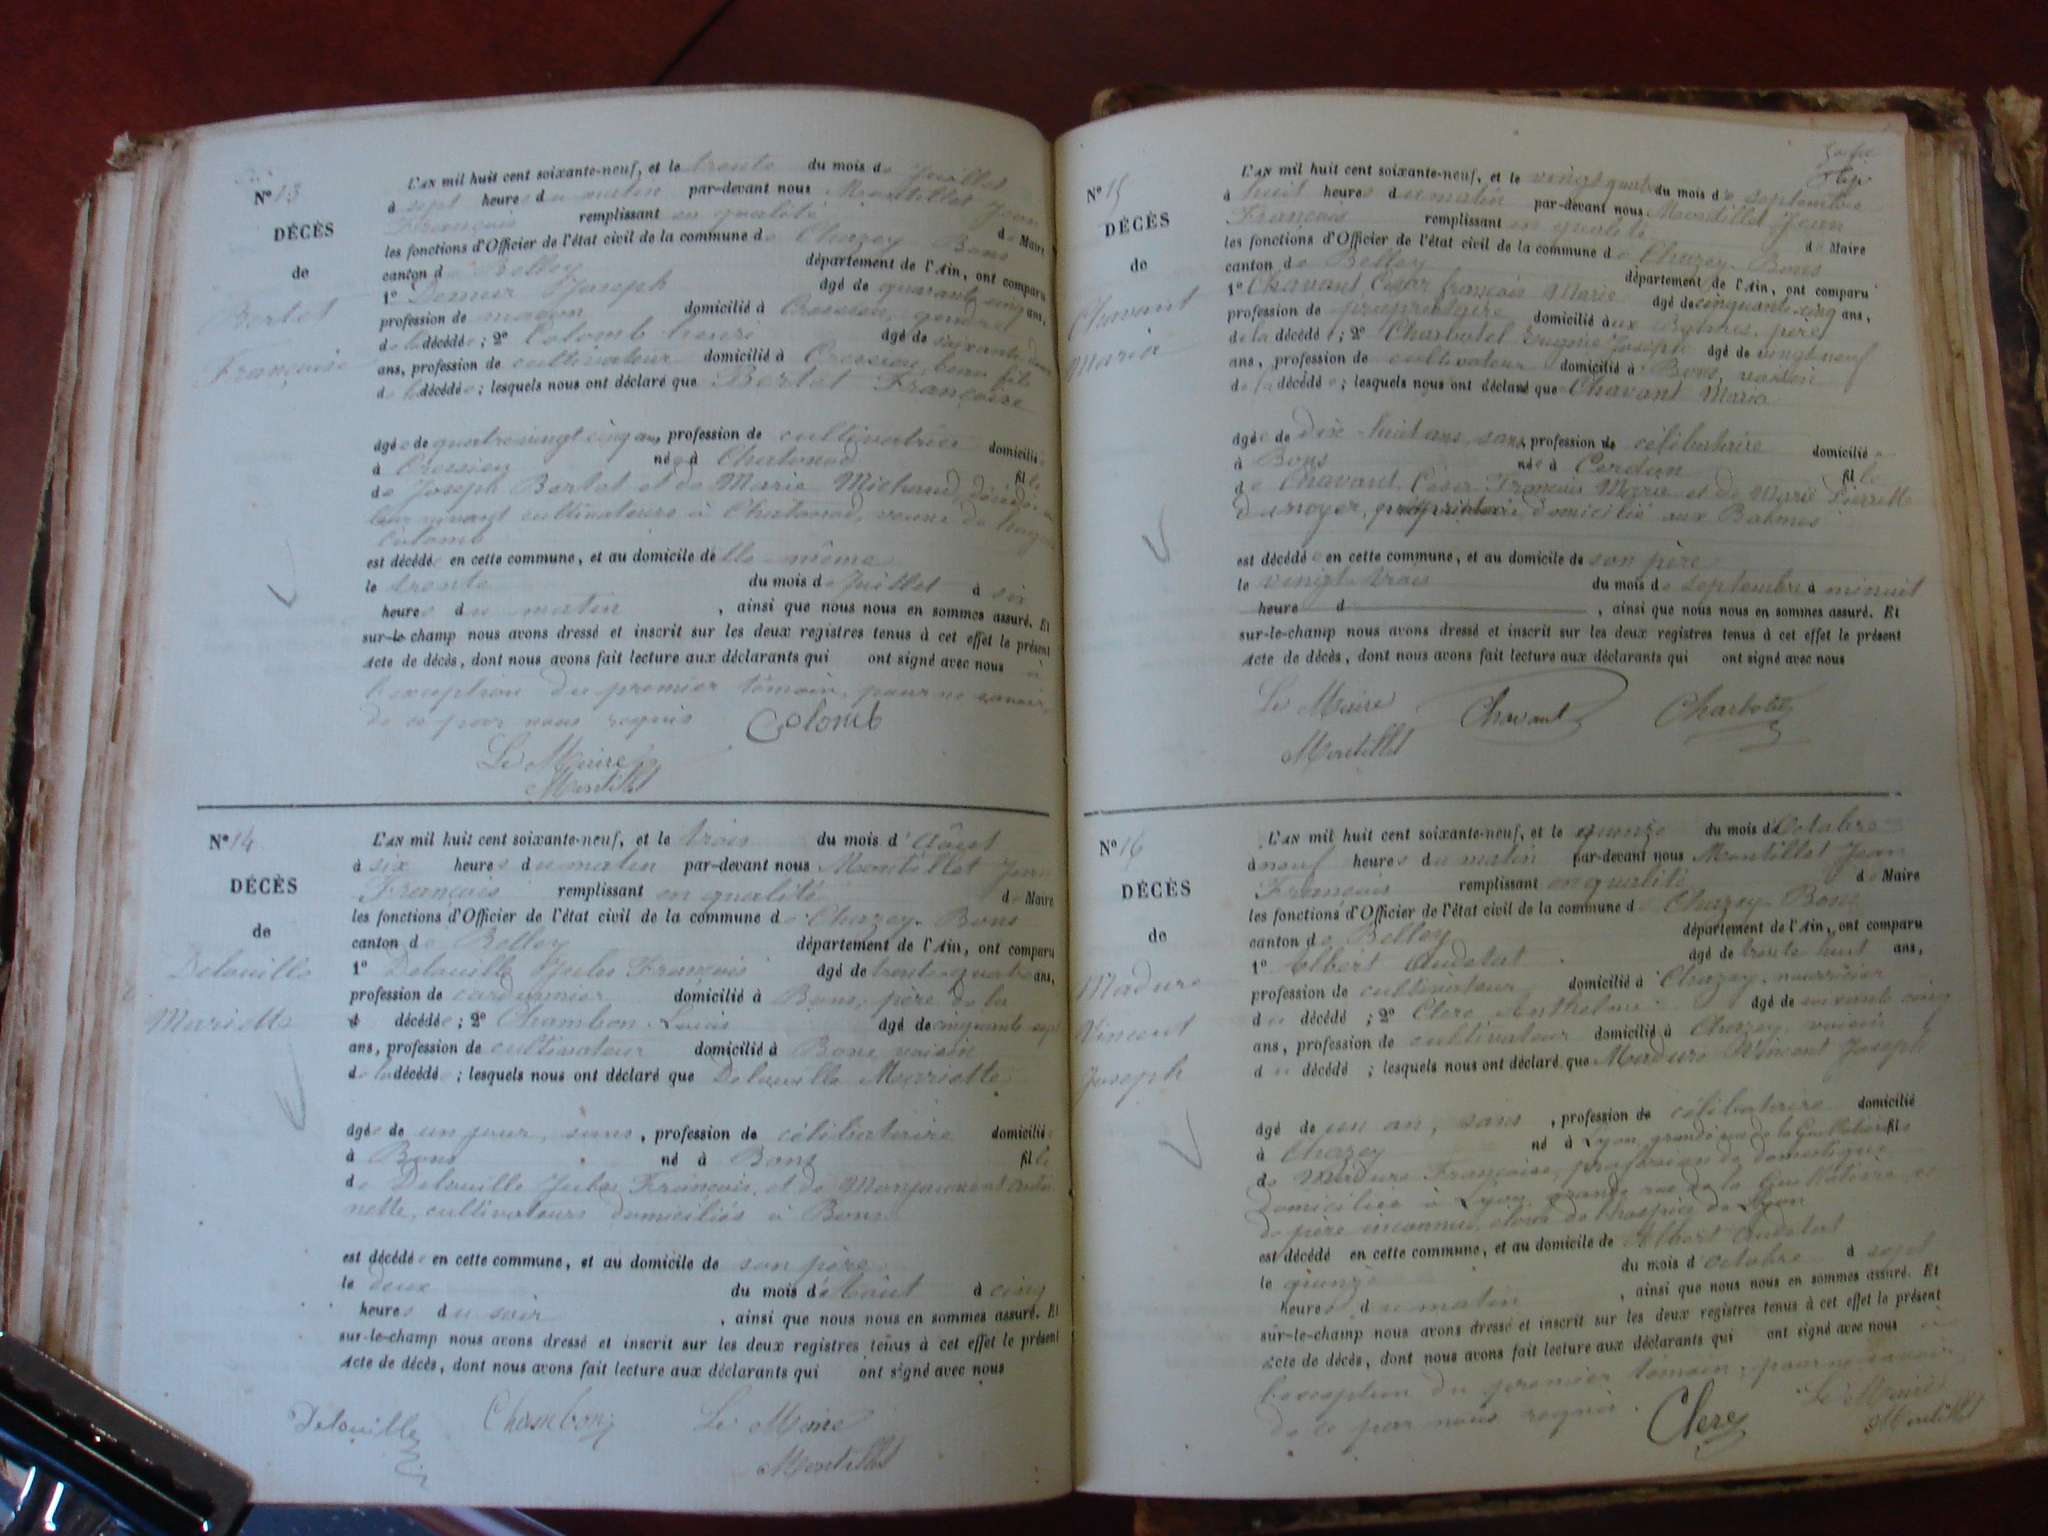 N° 13
DÉCÈS
de
Bertet
Françoise
L'AN mil huit cent soixante-neuf, et le trente du mois de Juillet
à sept heures du matin par-devant nous Montillet Jean
François remplissant en qualité de Maire
les fonctions d'Officier de l'état civil de la commune de Chazey Bons
canton de Belley département de l'Ain, ont comparu
1° Joseph âgé de quarante cinq ans,
profession de maçon domicilié à Cressieu, gendre
de la décédée ; 2° Colomb âgé de soixante
ans, profession de cultivateur domicilié à Cressieu, beau fils
de la décédée ; lesquels nous ont déclaré que Bertet Françoise
âgée de quatre vingt cinq ans, profession de cultivatrice domiciliée
à Cressieu née à Chatonod fille
de Joseph Bertet et de Marie Michaud, décédés,
leur vivant cultivateurs à Chatonod, veuve de
Colomb
est décédée en cette commune, et au domicile d'elle-même
le trente du mois de Juillet à six
heures du matin , ainsi que nous nous en sommes assuré. Et
sur-le-champ nous avons dressé et inscrit sur les deux registres tenus à cet effet le présent
Acte de décès, dont nous avons fait lecture aux déclarants qui ont signé avec nous à
l'exception du premier témoin, pour ne savoir,
de ce par nous requis Colomb
Le Maire
Montillet
N° 14
DÉCÈS
de
Delouille
Mariette
L'AN mil huit cent soixante-neuf, et le trois du mois d'Aôust
à six heures du matin par-devant nous Montillet Jean
François remplissant en qualité de Maire
les fonctions d'Officier de l'état civil de la commune de Chazey-Bons
canton de Belley département de l'Ain, ont comparu
1° Delouille Jules François âgé de trente quatre ans,
profession de cordonnier domicilié à Bons, père de la
décédée ; 2° Chambon Louis âgé de cinquante sept
ans, profession de cultivateur domicilié à Bons, voisin
de la décédée ; lesquels nous ont déclaré que Delouille Mariette
âgée de un jour, sans , profession de célibataire domiciliée
à Bons né à Bons fille
de Delouille Jules François, et de antoi-
nette, cultivateurs domiciliés à Bons
est décédée en cette commune, et au domicile de son père
le deux du mois d'Août à cinq
heures du soir , ainsi que nous nous en sommes assuré. Et
sur-le-champ nous avons dressé et inscrit sur les deux registres tenus à cet effet le présent
Acte de décès, dont nous avons fait lecture aux déclarants qui ont signé avec nous
Delouille Chambon Le Maire
Montillet
N° 15
DÉCÈS
de
Chavant
Maria
L'AN mil huit cent soixante-neuf, et le vingt quatre du mois de septembre
à huit heures du matin par-devant nous Montillet Jean
François remplissant en qualité de Maire
les fonctions d'Officier de l'état civil de la commune de Chazey-Bons
canton de Belley département de l'Ain, ont comparu
1° Chavant, César françois Marie âgé de cinquante-cinq ans,
profession de propriétaire domicilié aux Balmes, père
de la décédée ; 2° Charbotel Eugène Joseph âgé de vingt neuf
ans, profession de cultivateur domicilié à Bons, voisin
de la décédée ; lesquels nous ont déclaré que Chavant Maria
âgée de dix-huit ans, sans profession de célibataire domiciliée
à Bons née à Cerdon fille
de Chavant César François Marie et de Marie Pierrette
Dunoyer, propriétaire, domicilié aux Balmes
est décédée en cette commune, et au domicile de son père
le vingt-trois du mois de septembre à minuit
heure d , ainsi que nous nous en sommes assuré. Et
sur-le-champ nous avons dressé et inscrit sur les deux registres tenus à cet effet le présent
Acte de décès, dont nous avons fait lecture aux déclarants qui ont signé avec nous
Le Maire Chavant Charbotel
Montillet
N° 16
DÉCÈS
de
Madure
Vincent
Joseph
L'AN mil huit cent soixante-neuf, et le quinze du mois d'Octobre
à neuf heures du matin par-devant nous Montillet Jean
François remplissant en qualité de Maire
les fonctions d'Officier de l'état civil de la commune de Chazey-Bons
canton de Belley département de l'Ain, ont comparu
1° Albert Audetat âgé de trente huit ans,
profession de cultivateur domicilié à Chazey, nourricier
du décédé ; 2° Clerc Anthelme âgé de soixante cinq
ans, profession de cultivateur domicilié à Chazey, voisin
du décédé ; lesquels nous ont déclaré que Madure Vincent Joseph
âgé de un an, sans , profession de célibataire domicilié
à Chazey né à Lyon, grande rue de la Guillotière fils
de Madure Françoise, profession de domestique
domiciliée à Lyon, grande rue de la Guillotière, et
de père inconnu, élève de l'hospice de Lyon
est décédé en cette commune, et au domicile de Albert Audetat
le quinze du mois d'octobre à sept
heures du matin , ainsi que nous nous en sommes assuré. Et
sur-le-champ nous avons dressé et inscrit sur les deux registres tenus à cet effet le présent
Acte de décès, dont nous avons fait lecture aux déclarants qui ont signé avec nous à
l'exception du premier témoin, pour ne savoir
de ce par nous requis. Clerc Le Maire
Montillet